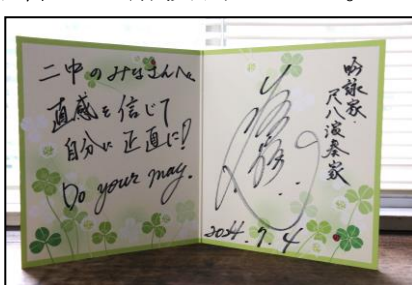 二中のみなさんへ
直感を信じて
自分に正直に!
Do your way.
吟詠家
尺八演奏家
2024.7.4